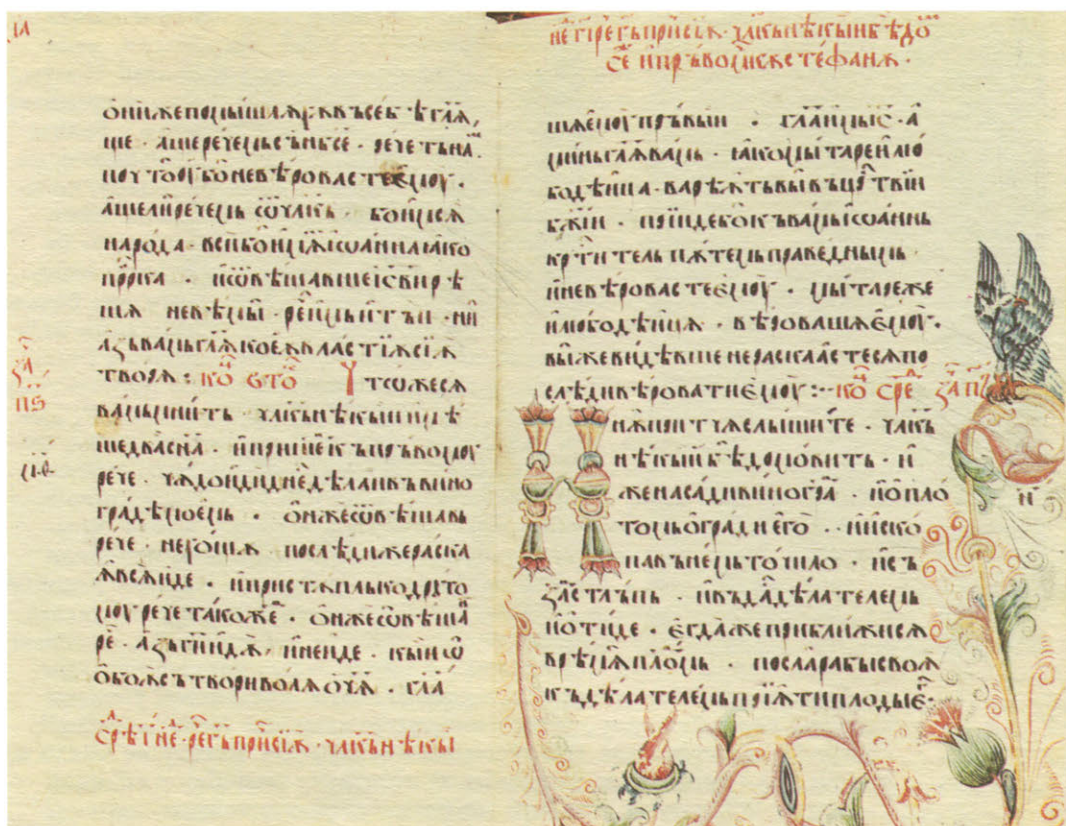 ѻниже помышлѧхѫ въ себѣ гл҃ѧ
ще · аще речемь съ нб҃се · речетъ на
поуто ѹбо не вѣровасте емоу ·
аще ли речемь ѿ чл҃къ · боимсѧ
народа · вси бо имѫ іѡанна ꙗко
прⷪ҇рка · и ѿвѣщавше іс҃ви рѣ
шѧ не вѣмы · рече имь и тъи · ни
азъ вамь гл҃ѧ коеѫ властїѫ сїѧ
творѧ : коⷰ҇ втоⷬ҇ Ч то же сѧ
вамь мнить чл҃къ нѣкыи имѣ
ше два сна · и пришеⷣ къ пръвомоу
рече · чѧдо иди днеⷭ҇ дѣлаи въ вино
градѣ моемь · ѻнже ѿвѣщавь
рече · не хощѫ послѣди же раска
ѧвсѧ иде · и пристѫпль къ дрꙋго
моу рече такожеⷣ · ѻнже ѿвѣща
ре · азъ гн҃ идѫ, и не иде · кыи ѿ
ѻбою сътвори волѧ оч҃ѫ · гл҃а
срѣⷣ · рег҃ъ притⷱ҇ѫ сїѫ · чл҃къ нѣкы
чл҃къ нѣкыи бѣ до
и пръвомⷱ҇ка стефана ·
шѧ емоу пръвыи · гл҃а имь іс҃ · а
минь гл҃ѧ вамь · ꙗко мытаре и лю
бодѣица варѣѫть вы въ црⷭ҇твїи
бж҃їи · прїиде бо къ вамь іѡаннь
крⷭ҇титель пѫтемь праведнымь ·
и не вѣровасте емоу · мытаре же
и любодѣицѧ · вѣровашѧ емоу ·
вы же видѣвше не раскаастесѧ по
слѣди вѣровати емоу :· коⷰ҇ среⷣ за
И нѫ притчѫ слышите · чл҃къ
нѣкыи бѣ домовить · и
же насади виногра · и ѻпло
томь огради его · и иско
па въ немь точило · и съ
зда стлъпь · и въдаⷭ҇ дѣлателемь
и ѻтиде · егда же приближисѧ
врѣмѧ плоⷣмь · посла рабы своѧ
къ дѣлателемь прїѧти плоды е҃г ·